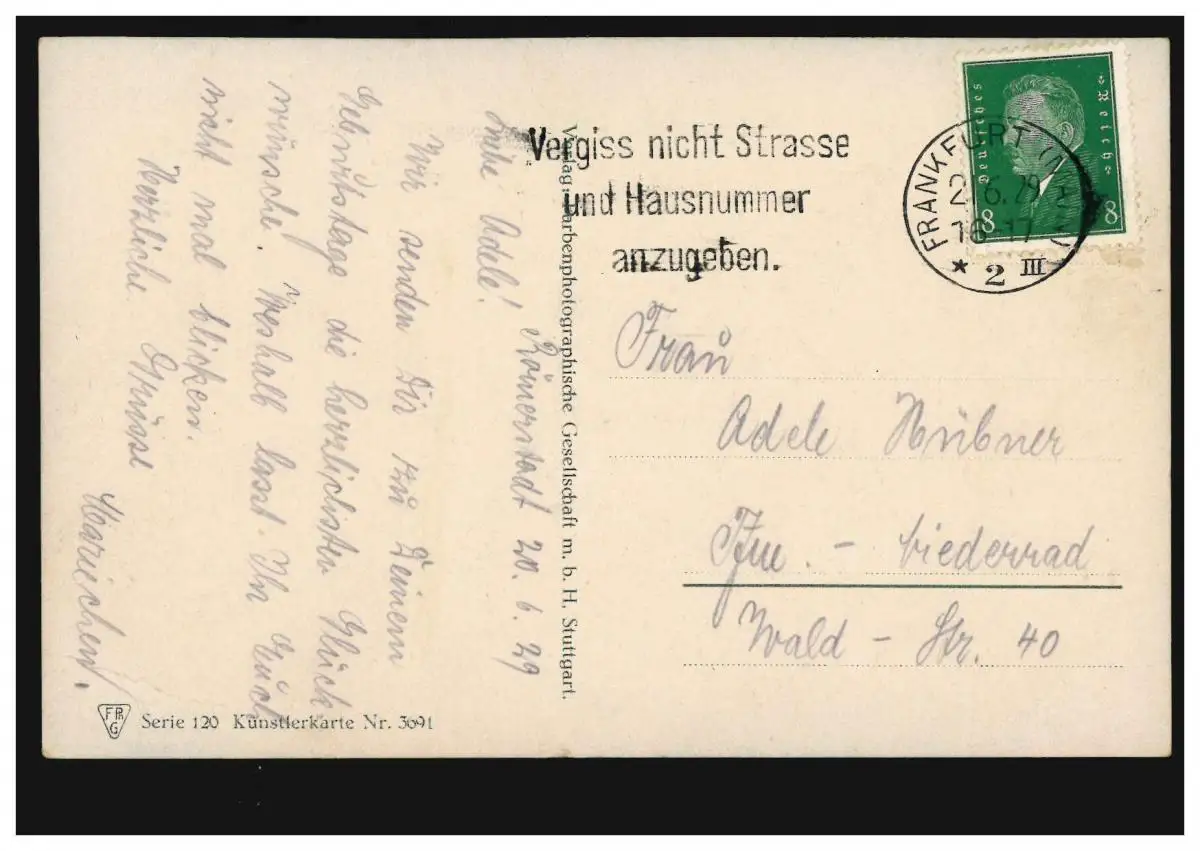 Römerstadt 20.6.29
Liebe Adele!
Wir senden Dir zu Deinem
Geburtstage die herzlichsten Glück
wünsche. Weshalb lasst Ihr Euch
nicht mal blicken.
Herzliche Grüsse
Mariechen.
Serie 120 Künstlerkarte Nr. 3691
F PH G
Verlag: Farbenphotographische Gesellschaft m. b. H. Stuttgart.
Vergiss nicht Strasse
und Hausnummer
anzugeben.
Deutsches Reich
8 8
FRANKFURT
6.29
16-17
* 2 III
Frau
Adele Hübner
Ffm. - Niederrad
Wald - Str. 40